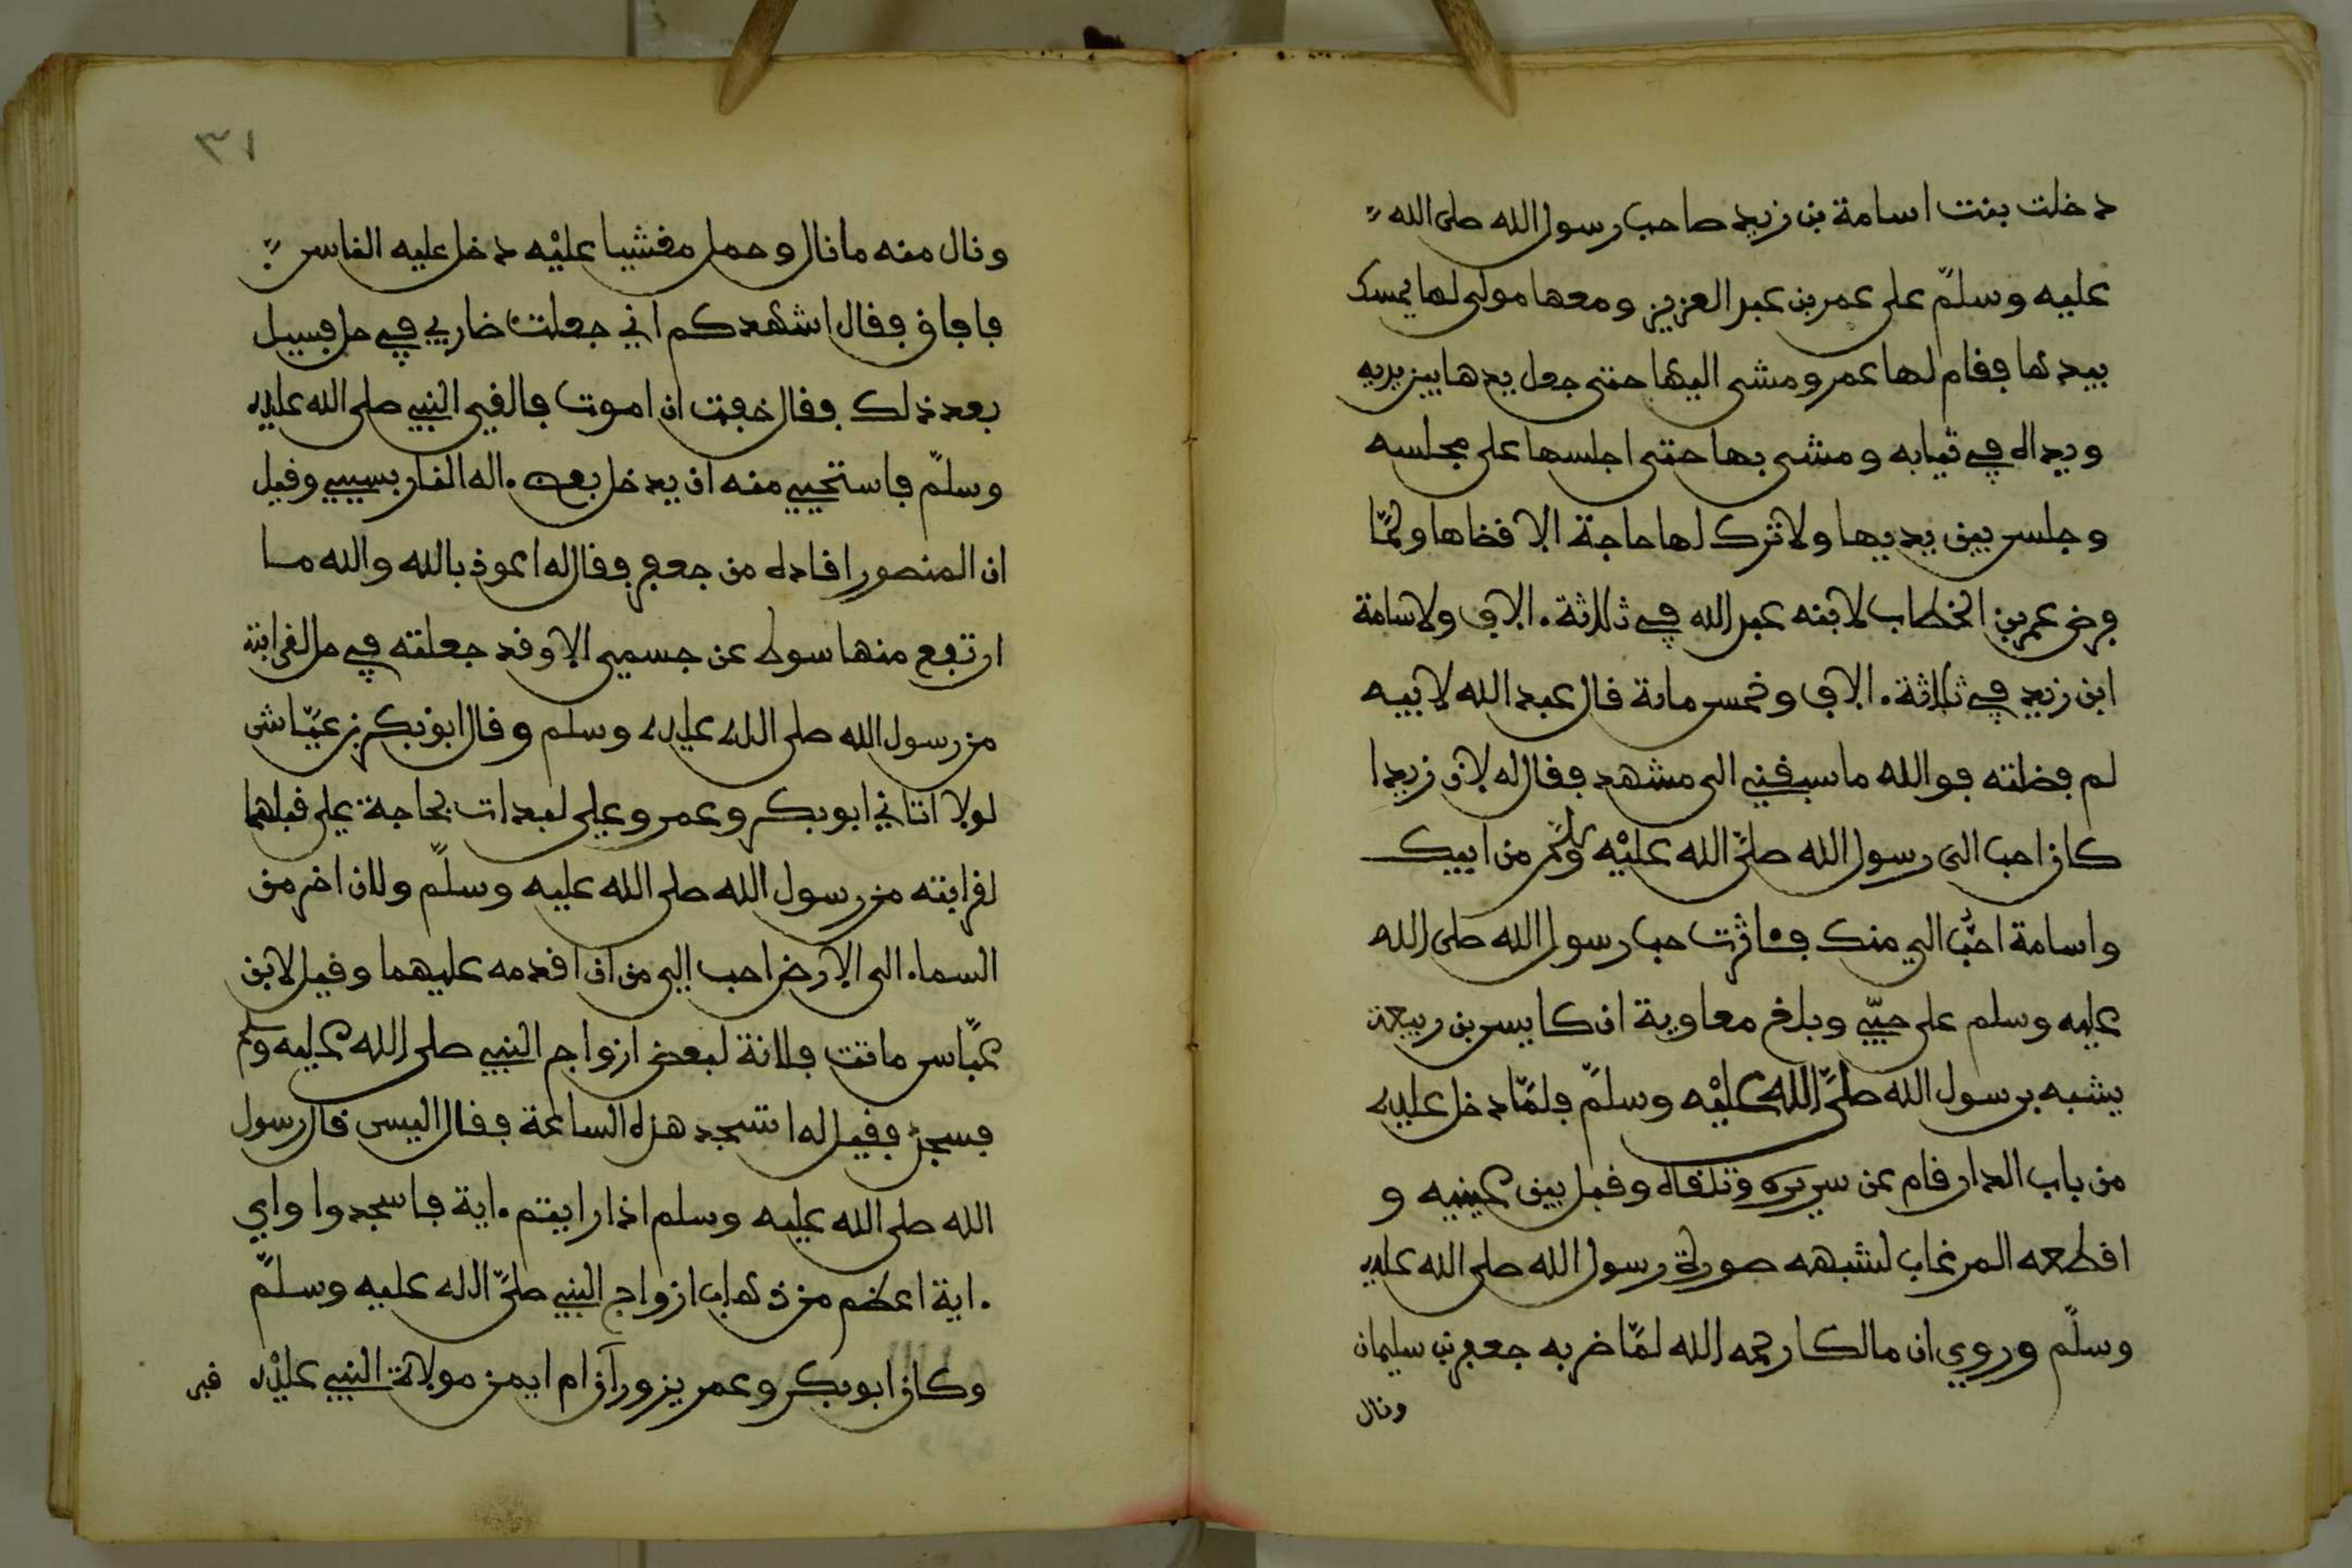 دخلت بنت اسامة بن زيد صاحب رسول الله صلى الله
عليه وسلم على عمر بن عبد العزيز ومعها مولى لها يمسك
بيدها فقام لها عمر ومشى اليها حتى جعل يدها بين يديه
ويداه في ثيابه ومشى بها حتى اجلسها على مجلسه
وجلس بين يديها ولا ترك لها حاجة الا قضاها ولمّا
فرض عمر بن الخطاب لابنه عبد الله في ثلاثة الاف ولاسامة
ابن زيد في ثلاثة الاف وخمس ماىة قال عبد الله لابيه
لم فضلته فوالله ما سبقني الى مشهد فقال له لان زيدا
كان احب الى رسول الله صلّى الله عليْه وسلّم من ابيك
واسامة احبّ الي منك فـاثرت حب رسول الله صلى الله
عليه وسلم على حبّي وبلغ معاوية ان كابس بن ربيعة
يشبه برسول الله صلّى الله عليْه وسلّم فلمّا دخل عليه
من باب الدار قام عن سريره وتلقاه وقبل بين عينيه و
اقطعه المرغاب لشبهه صورة رسول الله صلى الله عليه
وسلّم وروي ان مالكا رحمه الله لمّا ضربه جعفر بن سليمان
ونال
٣١
ونال منه ما نال وحمل مغشيا عليْه دخل عليه الناس
فافاق فقال اشهدكم اني جعلت ضاربي في حل فسيل
بعد ذلك فقال خفت ان اموت فالقى النبي صلى الله عليه
وسلّم فاستحيي منه ان يدخل بعض اله النار بسببي وقيل
ان المنصور اقاده من جعفر فقال له اعوذ بالله والله مـا
ارتفع منها سوط عن جسمي الا وقد جعلته في حل لقرابته
من رسول الله صلى الله عليه وسلم وقال ابو بكر بن عيّاش
لولا اتاني ابو بكر وعمر وعلي لبدات بحاجة علي قبلهما
لقرابته من رسول الله صلى الله عليه وسلّم ولان اخر من
السماء الى الارض احب الي من ان اقدمه عليهما وقيل لابن
عبّاس ماتت فلانة لبعض ازواج النبي صلى الله عليه وسلم
فسجد فقيل له اتسجد هذه الساعة فقال اليس قال رسول
الله صلى الله عليه وسلم اذا رايتم اية فاسجدوا واي
اية اعظم من ذهاب ازواج النبي صلّى الله عليه وسلّم
وكان ابو بكر وعمر يزوران ام ايمن مولاة النبي عليْه